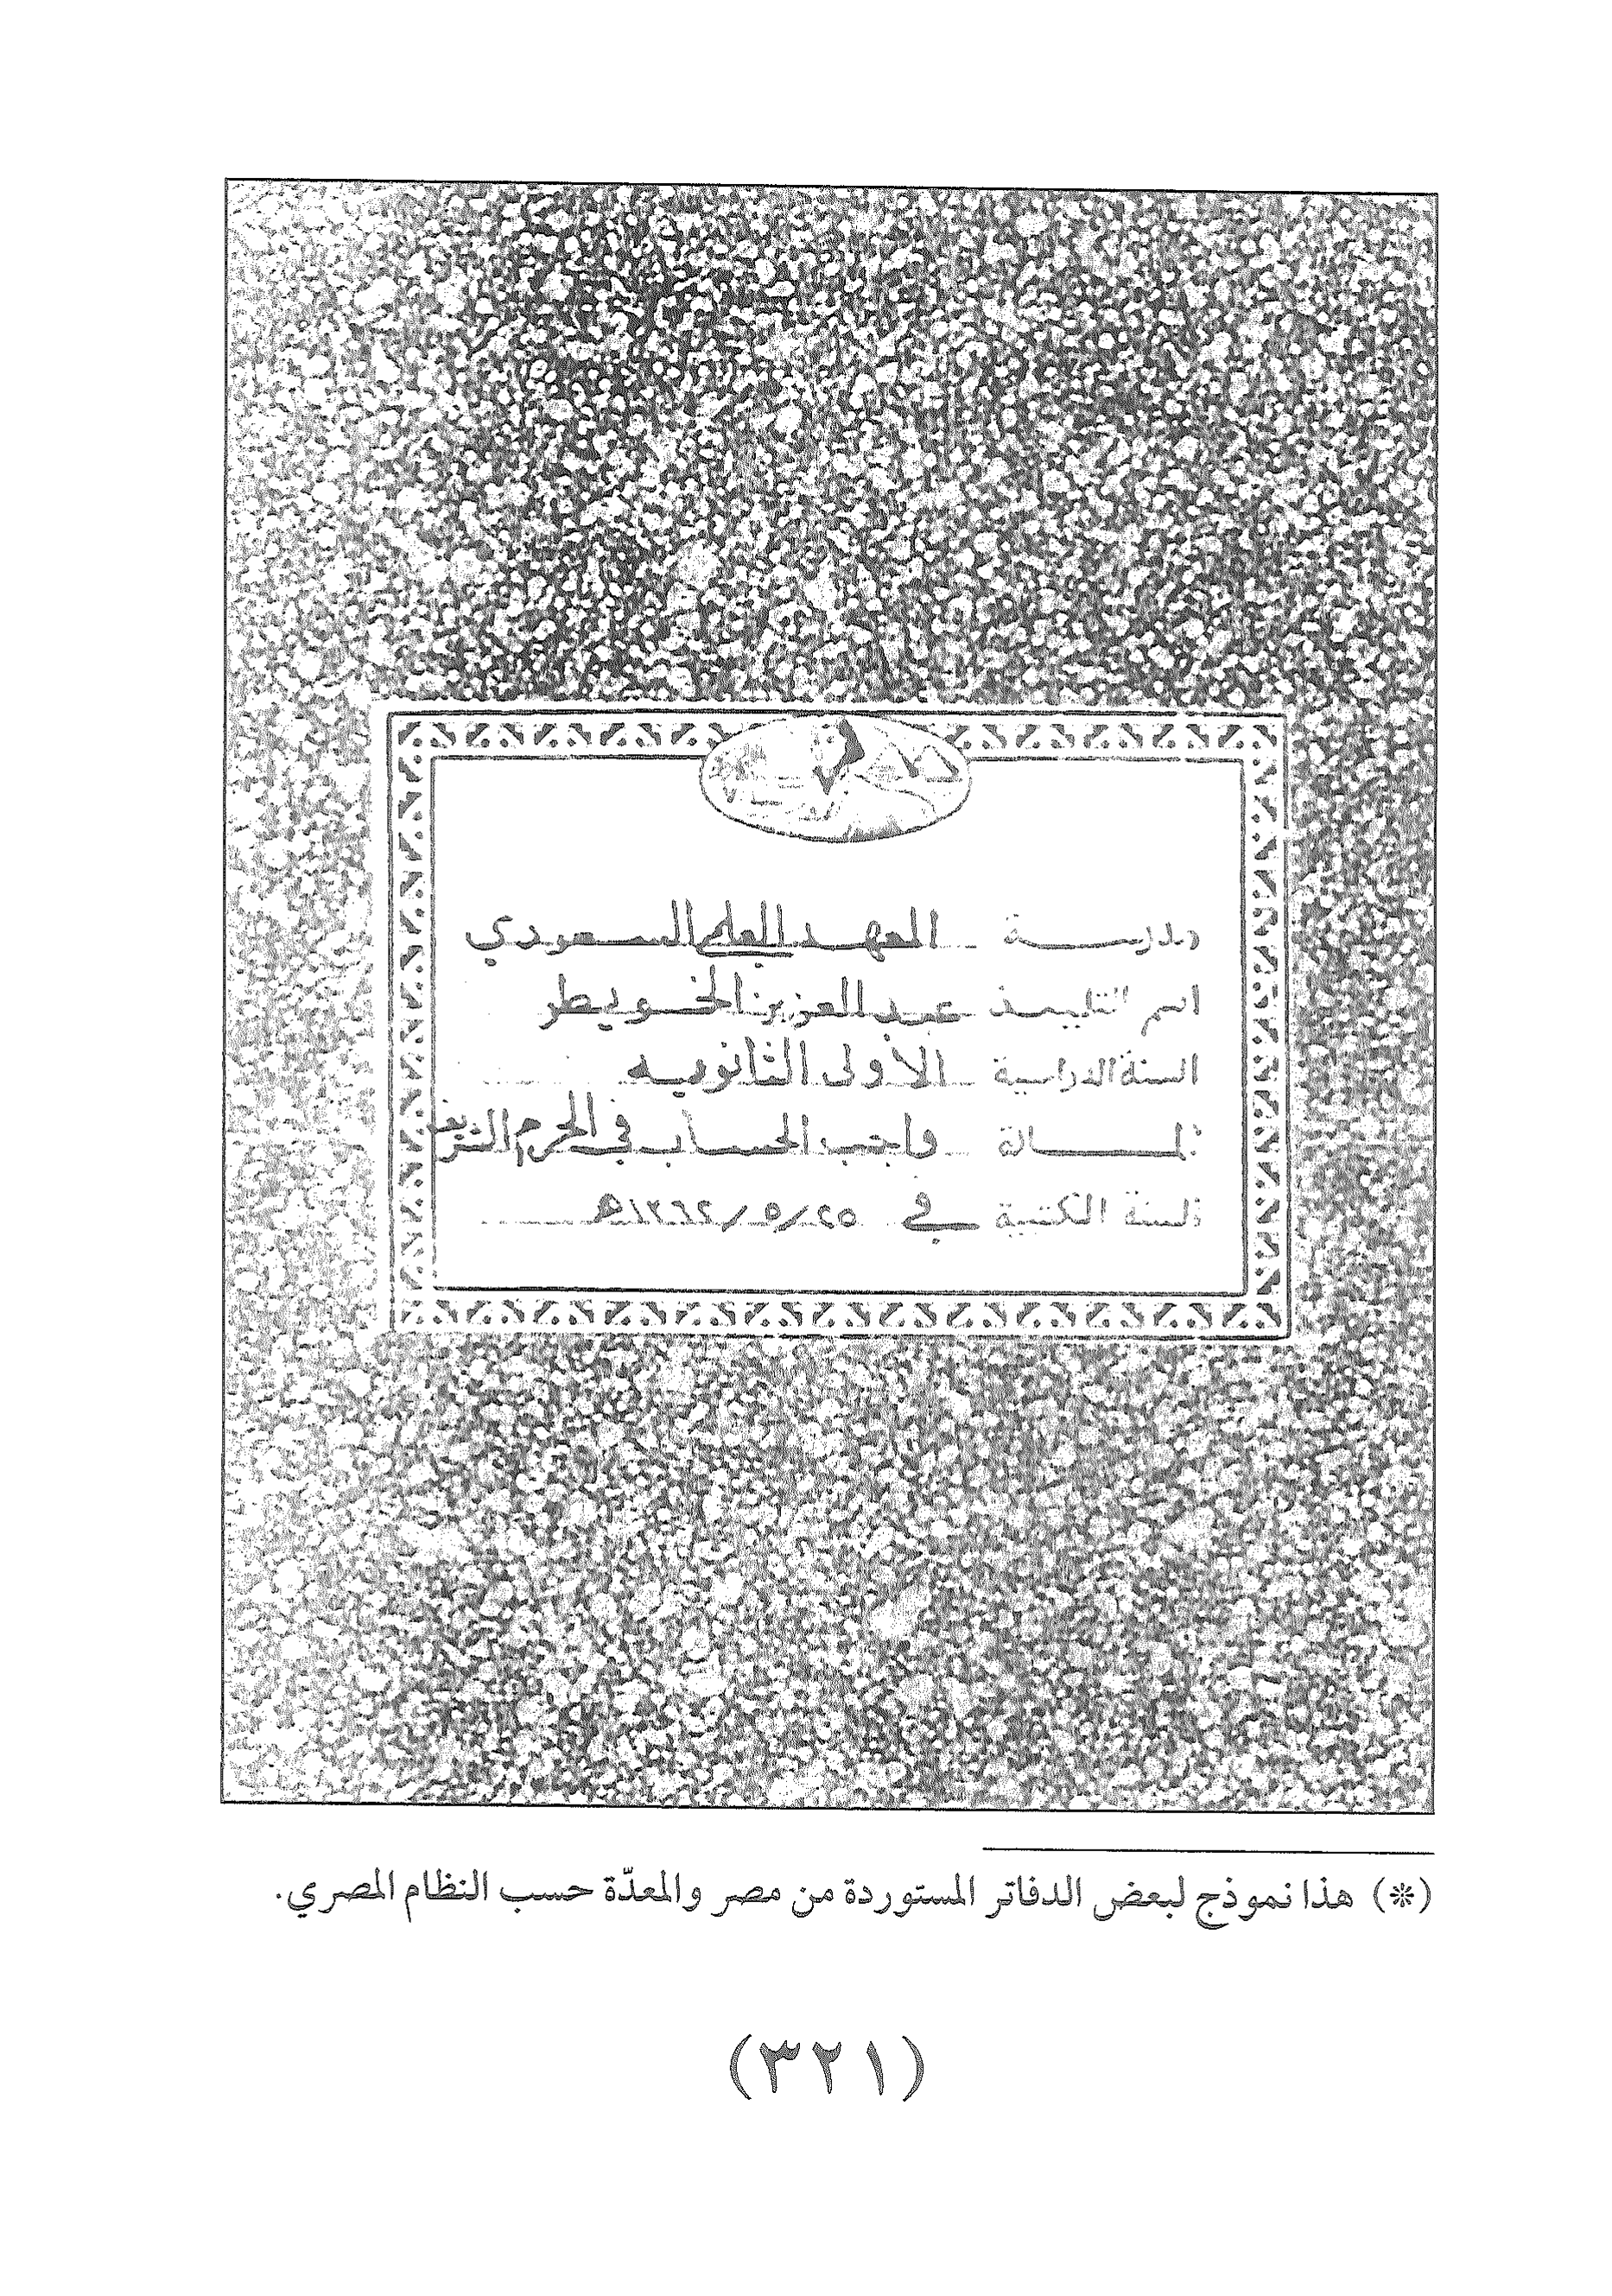 مدرسة المعهد العلمي السعودي
اسم التلميذ عبد العزيز الخويطر
السنة الدراسية الأولى الثانويه
المادة واجب الحساب في الحرم الشريف
السنة المكتبية في ٢٥/ ٥/ ١٣٦٢ﻫ
(*) هذا نموذج لبعض الدفاتر المستوردة من مصر والمعدّة حسب النظام المصري.
(٣٢١)